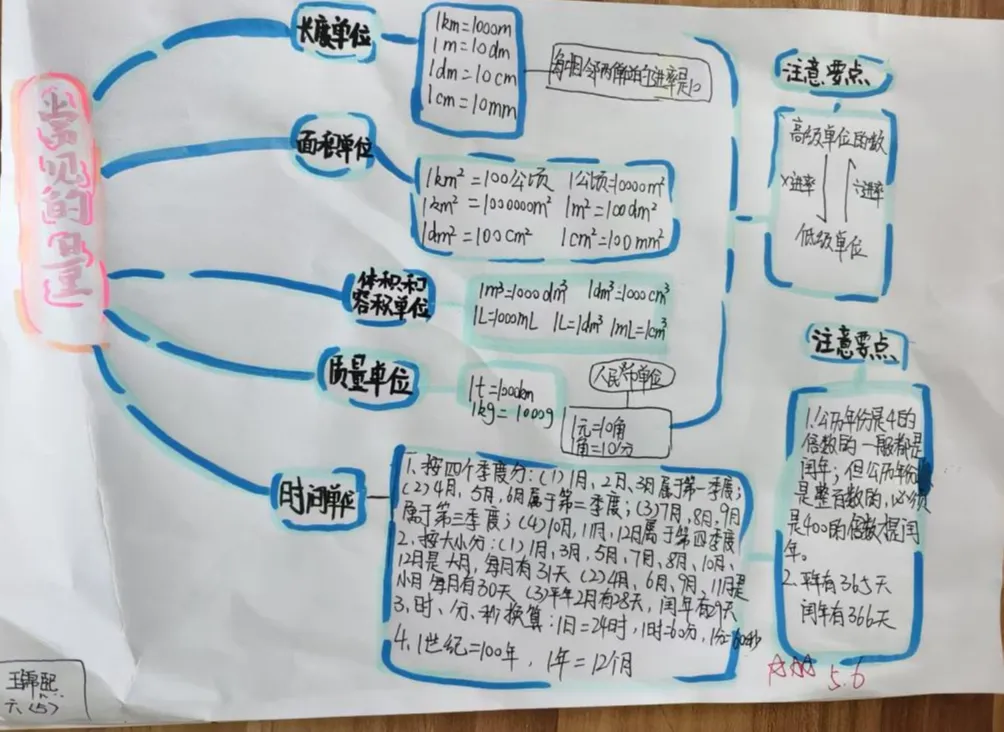 常见的量
长度单位
1km=1000m
1m=10dm
1dm=10cm
1cm=10mm
每相邻两个单位的进率是10
面积单位
1km²=100公顷 1公顷=10000m²
1km²=1000000m² 1m²=100dm²
1dm²=100cm² 1cm²=100mm²
体积和
容积单位
1m³=1000dm³ 1dm³=1000cm³
1L=1000mL 1L=1dm³ 1mL=1cm³
质量单位
1t=1000km
1kg=1000g
人民币单位
1元=10角
1角=10分
时间单位
1、按四个季度分:(1)1月、2月、3月属于第一季度;
(2)4月、5月,6月属于第二季度;(3)7月,8月,9月
属于第三季度;(4)10月,11月,12月属于第四季度
2、按大小分:(1)1月、3月,5月、7月、8月、10月、
12月是大月,每月有31天(2)4月、6月、9月、11月是
小月每月有30天(3)平年2月有28天,闰年有29天
3、时、分、秒换算:1日=24时,1时=60分,1分=60秒
4、1世纪=100年,1年=12个月
注意要点
高级单位的数
×进率 ÷进率
低级单位
注意要点
1.公历年份是4的
倍数的一般都是
闰年;但公历年份
是整百数的,必须
是400的倍数才是闰
年。
2.平年有365天
闰年有366天
5.6
六(5)